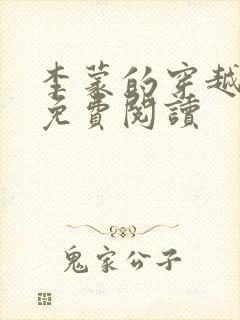 李蒙的穿越
免費閱讀
鬼家公子